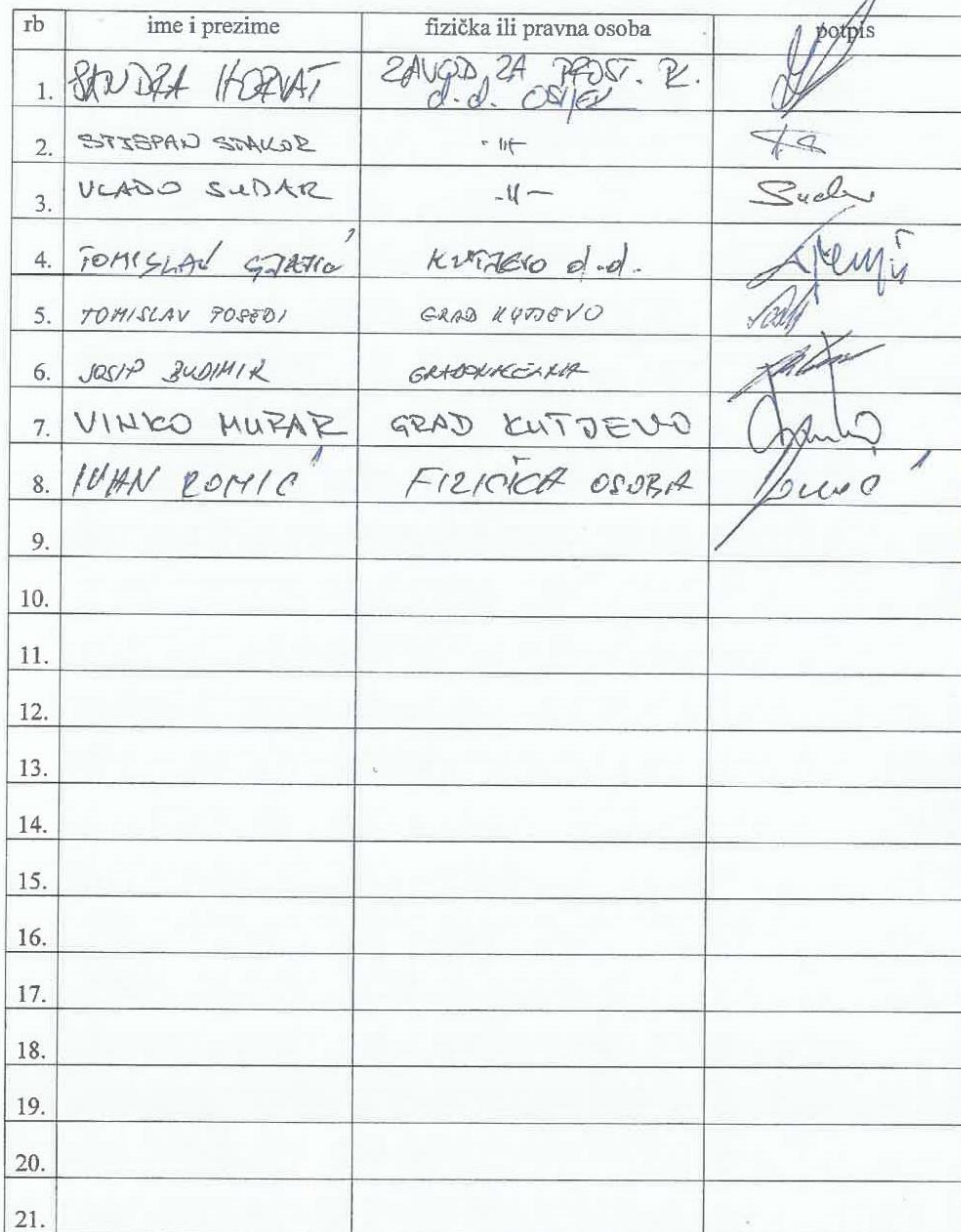 rb ime i prezime fizička ili pravna osoba potpis
1. SANDRA HORVAT ZAVOD ZA PROST. PL.
d.d. OSIJEK
2. STJEPAN STAKOR - 11 -
3. VLADO SUDAR - 11 - Sudar
4. TOMISLAV KUTJEVO d.d.
5. TOMISLAV POSEDI GRAD KUTJEVO
6. JOSIP BUDIMIR GRADONAČELNIK
7. VINKO MURAR GRAD KUTJEVO
8. IVAN ROMIĆ FIZIČKA OSOBA Romić
9.
10.
11.
12.
13.
14.
15.
16.
17.
18.
19.
20.
21.